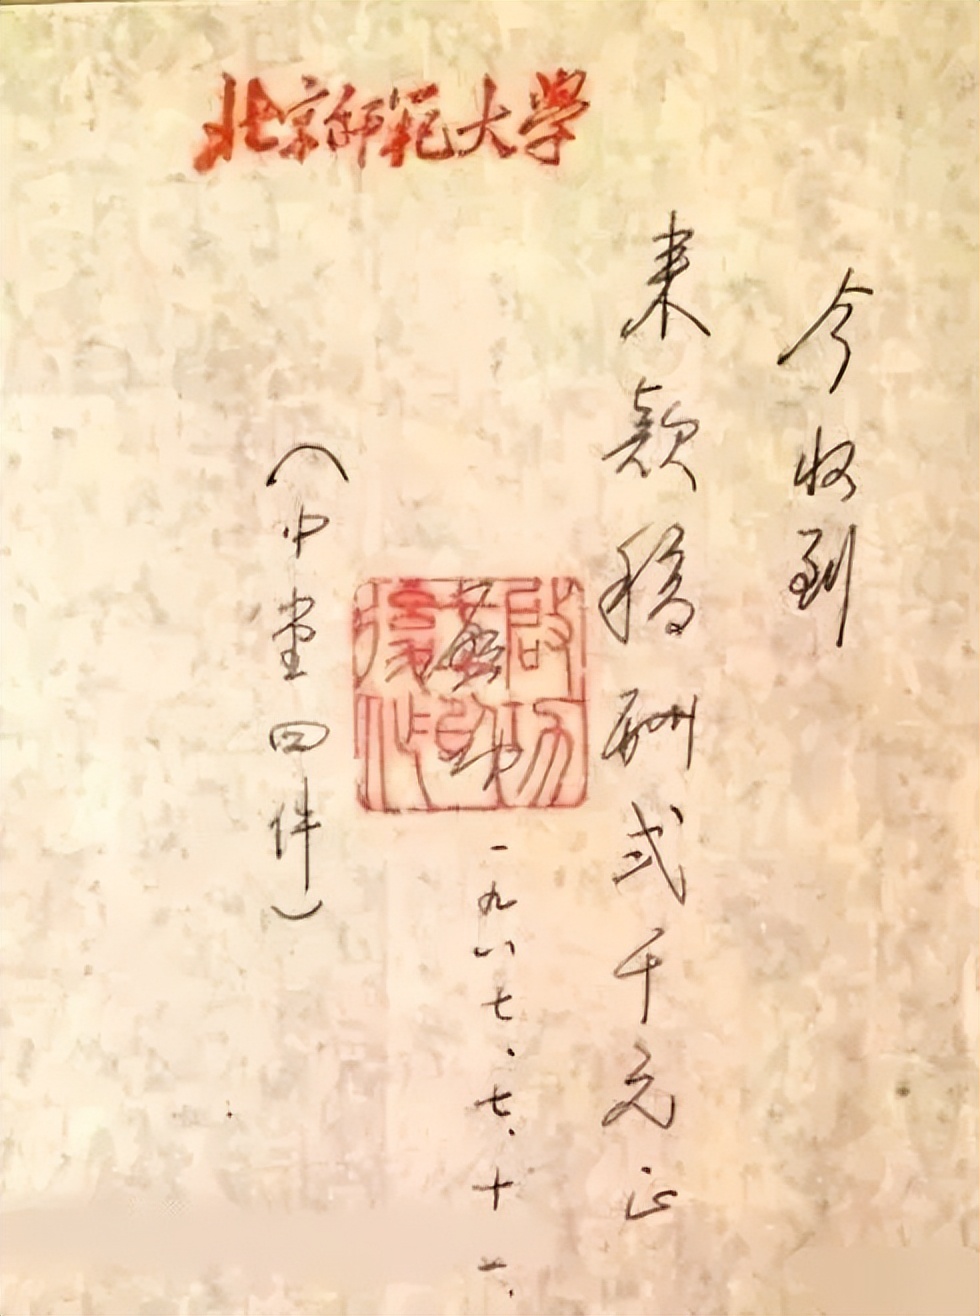 北京师範大学
今收到
来款稿酬弍千元正
启功
一九八七、七、十一、
（中堂四件）